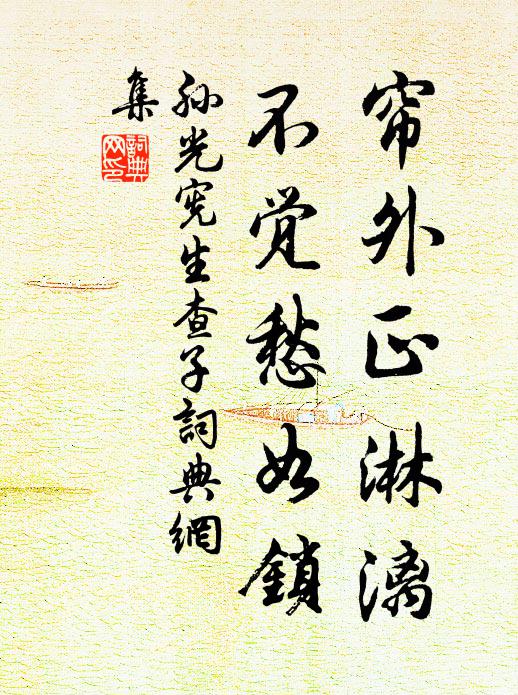 帘外正淋漓
不觉愁如鎖
孙光宪生查子詞典網
集
詞典
网印